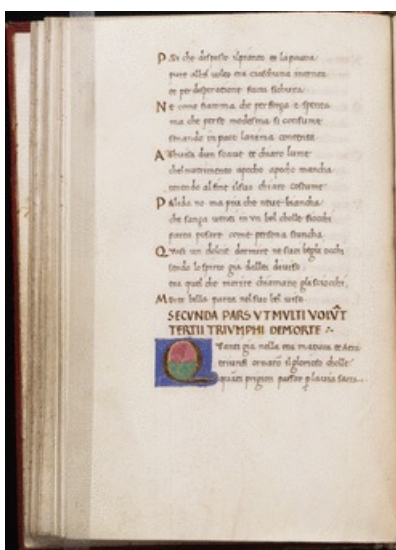 Poi che disposto il pianto et la paura
pure al bel volto era ciaschuna intenta
et per desperatione facta sichura
Ne come fiamma che per forza e spenta
ma che per se medesma si consume
senando in pace lanima contenta
A guisa dun soave et chiaro lume
chel nutrimento apocho apocho mancha
tenendo al fine il suo chiaro costume
Palida no ma piu che neve biancha
che sanza venti in un bel cholle fiocchi
parea posare come persona stancha
Quasi un dolcie dormire ne suoi begli occhi
sendo lo spirto gia dallei diviso
era quel che morire chiamano gli sciocchi
Morte bella parea nel suo bel viso
SECVNDA PARS VT MVLTI VOLVT
TERTII TRIVMPHI DE MORTE
Quanti gia nella eta matura et acra
triunfi ornaro il glorioso cholle
quati prigion passar p la via sacra